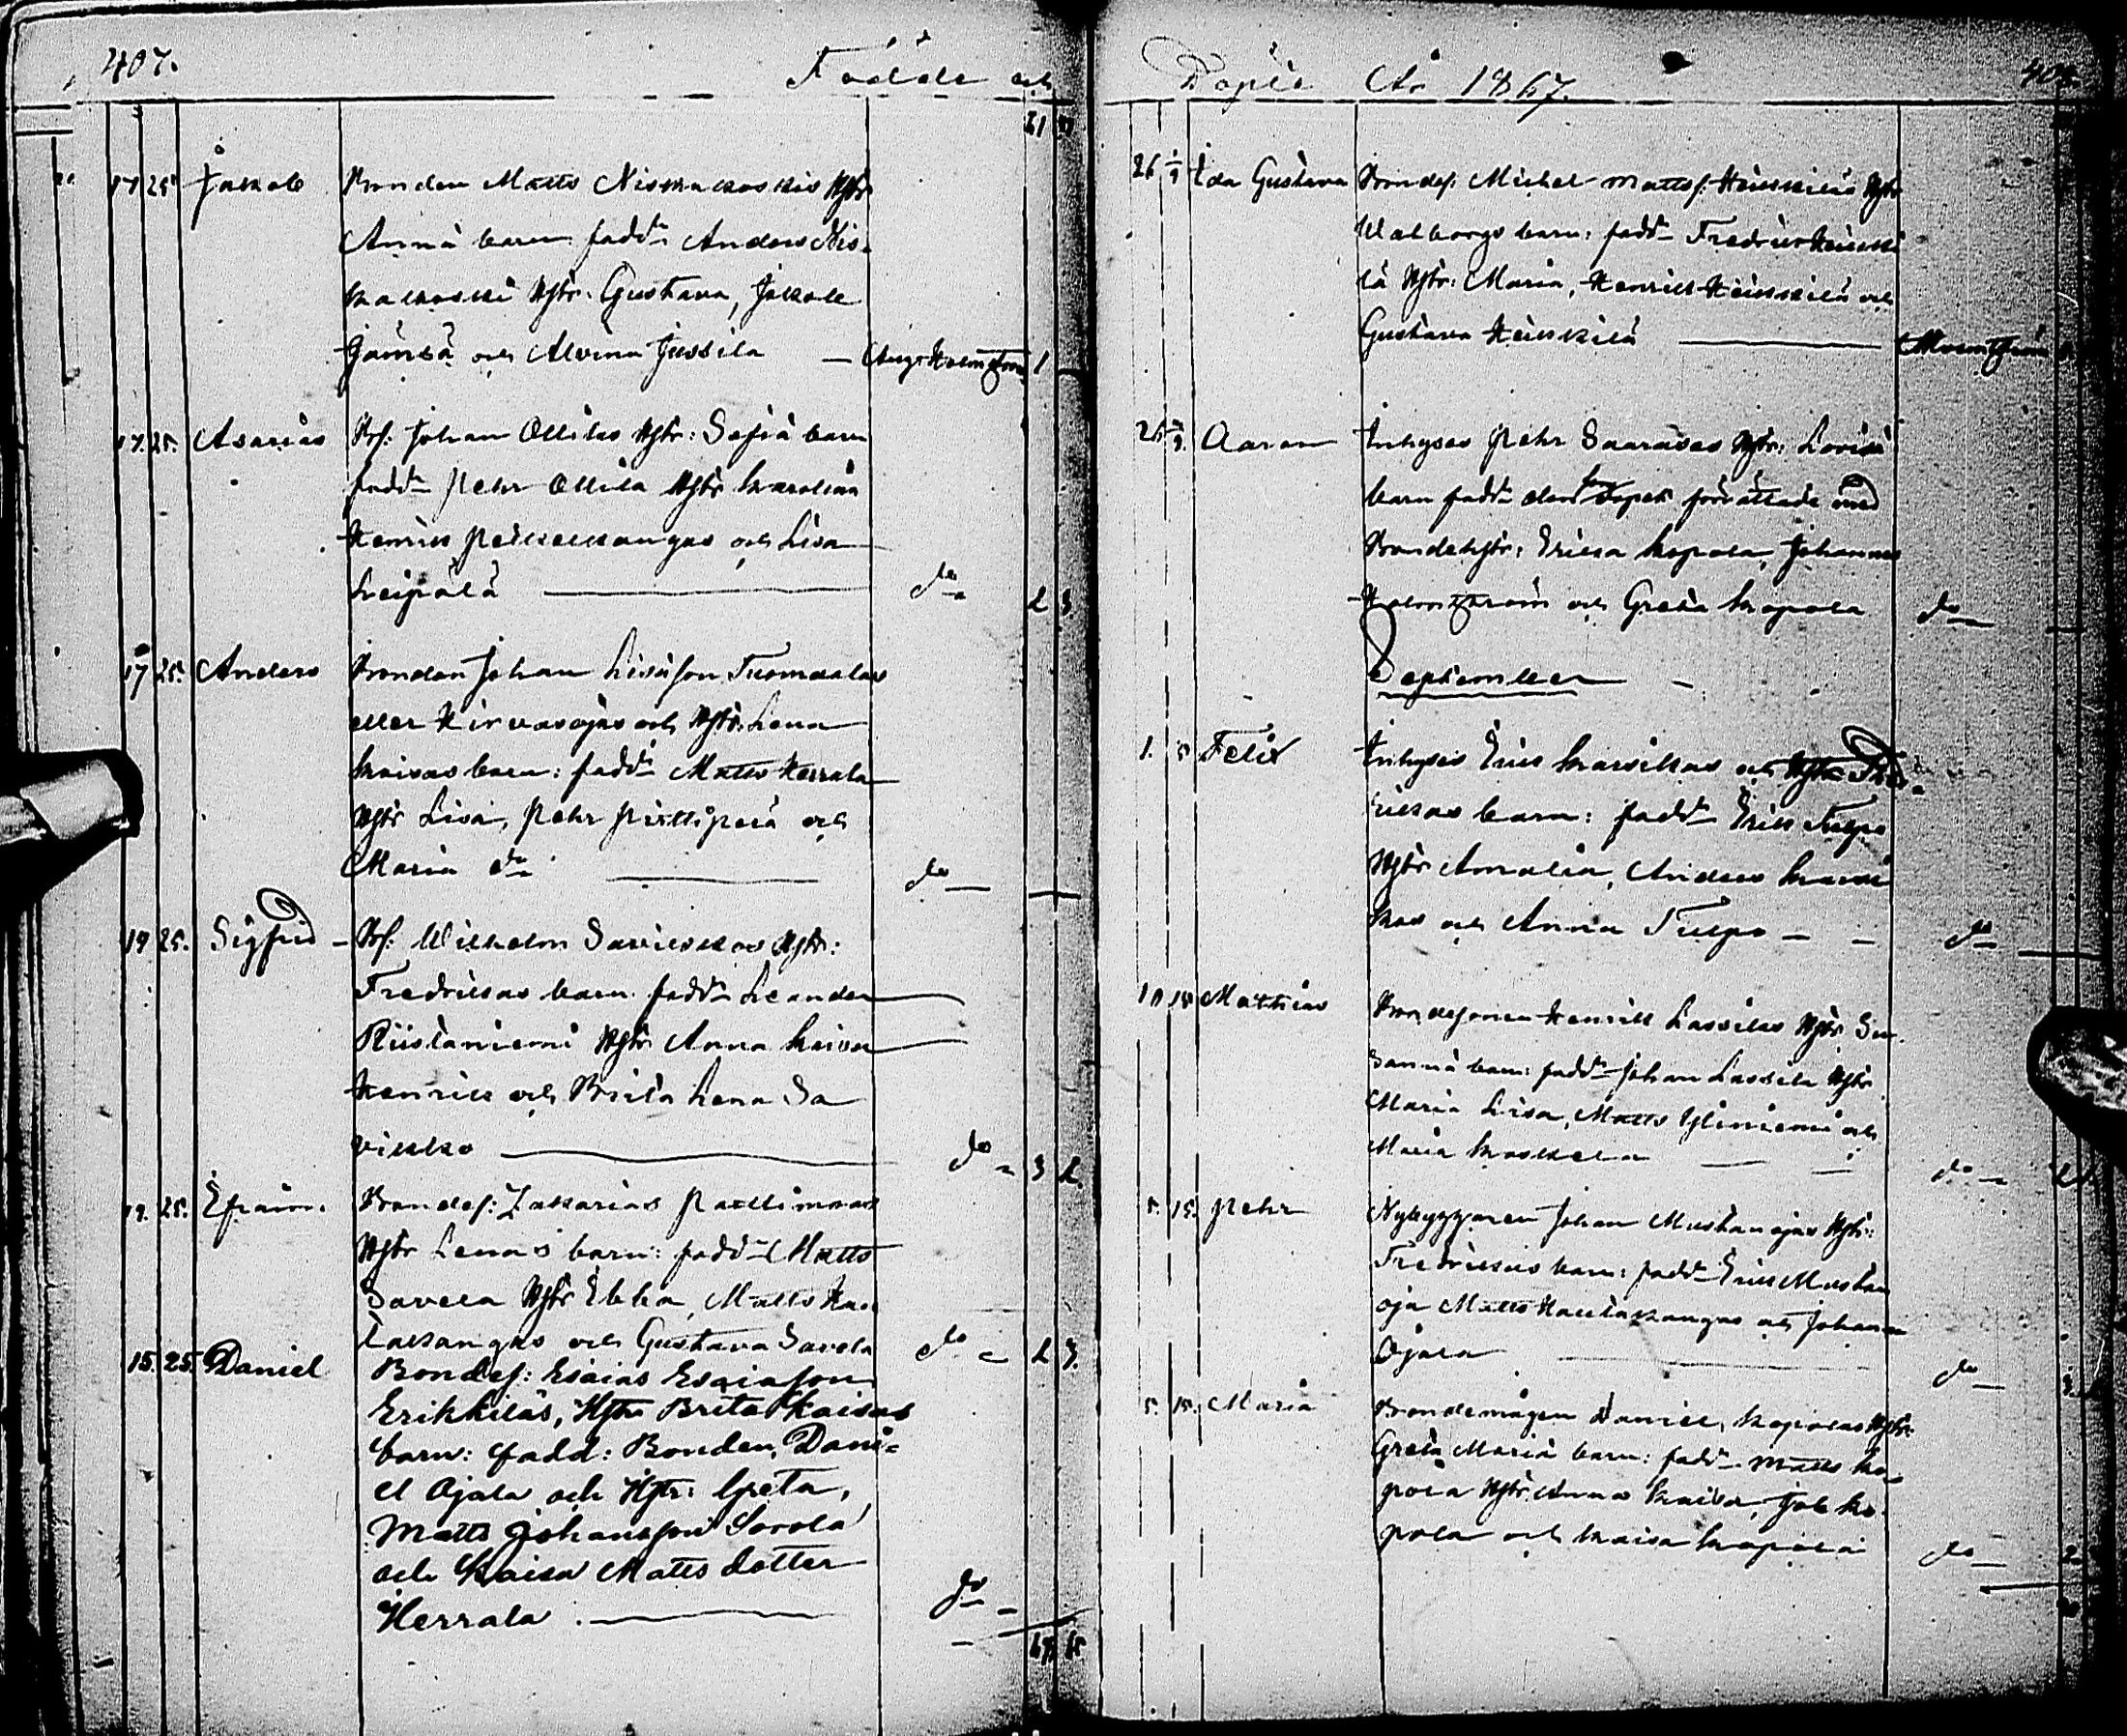 407.
Födde och
17 25 Jakob Bonden Matts Niskakoskis Hstr
Anna barn: fadd: Anders Nis-
kakoski Hstr: Gustava, Jakob
Jämsä och Alvina Jussila — Aug. Holmström 1
17. 25. Asarias Bs: Johan Ollilas Hstr: Sofia barn
fadd: Pehr Ollila Hstr Karolina
Henrik och Lisa
Leipälä — do 2 3
17 25. Anders Bonden Johan Tuomaalas
eller Hirvasojas och Hstr: Lena
Kaisas barn: fadd: Matts Herrala
Hstr Lisa, Pehr Pirttiperä och
Maria do — do —
19 25. Sigfrid Bs: Wilhelm Savilkkos Hstr:
Fredrikas barn fadd: Leander
Riistaniemi Hstr Anna Kaisa
Henrik och Brita Lena Sa
vikko — do 3 2
19. 25. Efraim. Bondes: Zakarias
Hstr Lenas barn: fadd: Matts
Savela Hstr Ebba, Matts Hau
takangas och Gustava Savela do 2 3.
15. 25. Daniel Bondes: Esaias Esaiasson
Erikkiläs, Hstr Brita Kaisas
barn: fadd: Bonden Dani-
el Ojala och Hstr: Greta,
Matts Johansson Sorola
och Kaisa Matts dotter
Herrala — do
Döpte År 1867.
26 1/9 Ida Gustava Bondes: Michel Mattss: Heikkiläs Hstr
Walborgs barn: fadd: Fredrik Heikki
lä Hstr: Maria, Henrik Heikkilä och
Gustava Heikkilä — Holmström
Aaron Inhyses Pehr Saarelas Hstr: Lovisa
barn fadd: dopet förrättade med
Bondehstr: Erika Kopola, Johannes
Holmström och Greta Kopola do
September
1. 8 Felix Inhyses Erik Karsikas och Hstr
Erikas barn: fadd: Erik Tulpo
Hstr Amalia, Anders Karsi
kas och Anna Tulpo — — do
10 18 Mathias Bondesonen Henrik Lassilas Hstr Su-
sanna barn: fadd: Johan Lassila Hstr
Maria Lisa, Matts Yliniemi och
Maria Koskela — do
5. 15. Pehr Nybyggaren Johan Mustanojas Hstr:
Fredrikas barn: fadd: Erik Mustan
oja Matts Hautakangas och Johanna
Ojala — do
5. 15. Maria Bondemågen Daniel Kopolas Hstr:
Greta Maria barn: fadd: Matts Ko-
pola Hstr: Anna Kaisa, Job Ko-
pola och Kaisa Kopola do